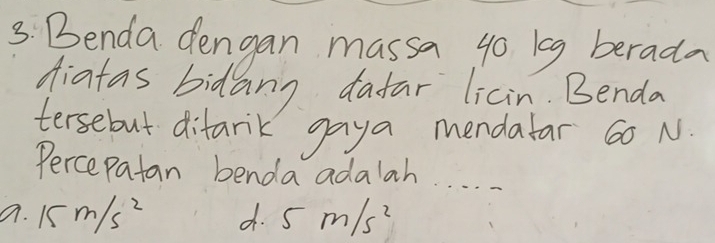 3. Benda dengan massa 40 kg berada
diatas bidang datar licin. Benda
tersebut ditarik gaya mendatar 60 N.
Percepatan benda adalah .....
a. 15 m/s² d. 5 m/s²